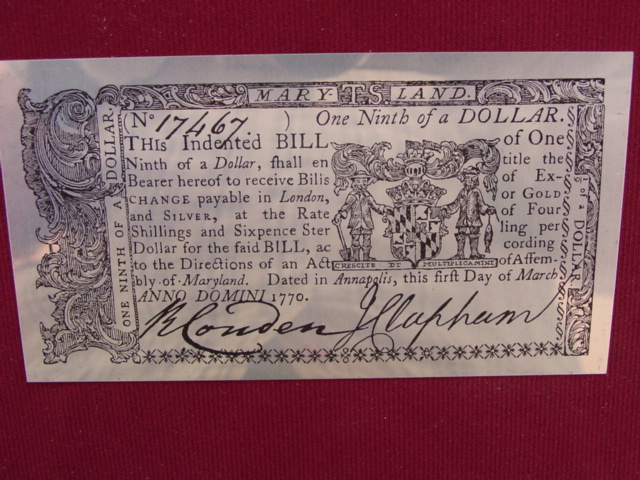 MARY-TS LAND.
(No 17467.) One Ninth of a DOLLAR.
THIS Indented BILL of One
Ninth of a Dollar, ſhall en title the
Bearer hereof to receive Bills of Ex-
CHANGE payable in London, or GOLD
and SILVER, at the Rate of Four
Shillings and Sixpence Ster ling per
Dollar for the ſaid BILL, ac cording
to the Directions of an Act of Aſſem-
bly of Maryland. Dated in Annapolis, this firſt Day of March
ANNO DOMINI 1770.
CRESCITE ET MULTIPLICAMINI
R Couden J Clapham
ONE NINTH OF A DOLLAR.
of a DOLLAR